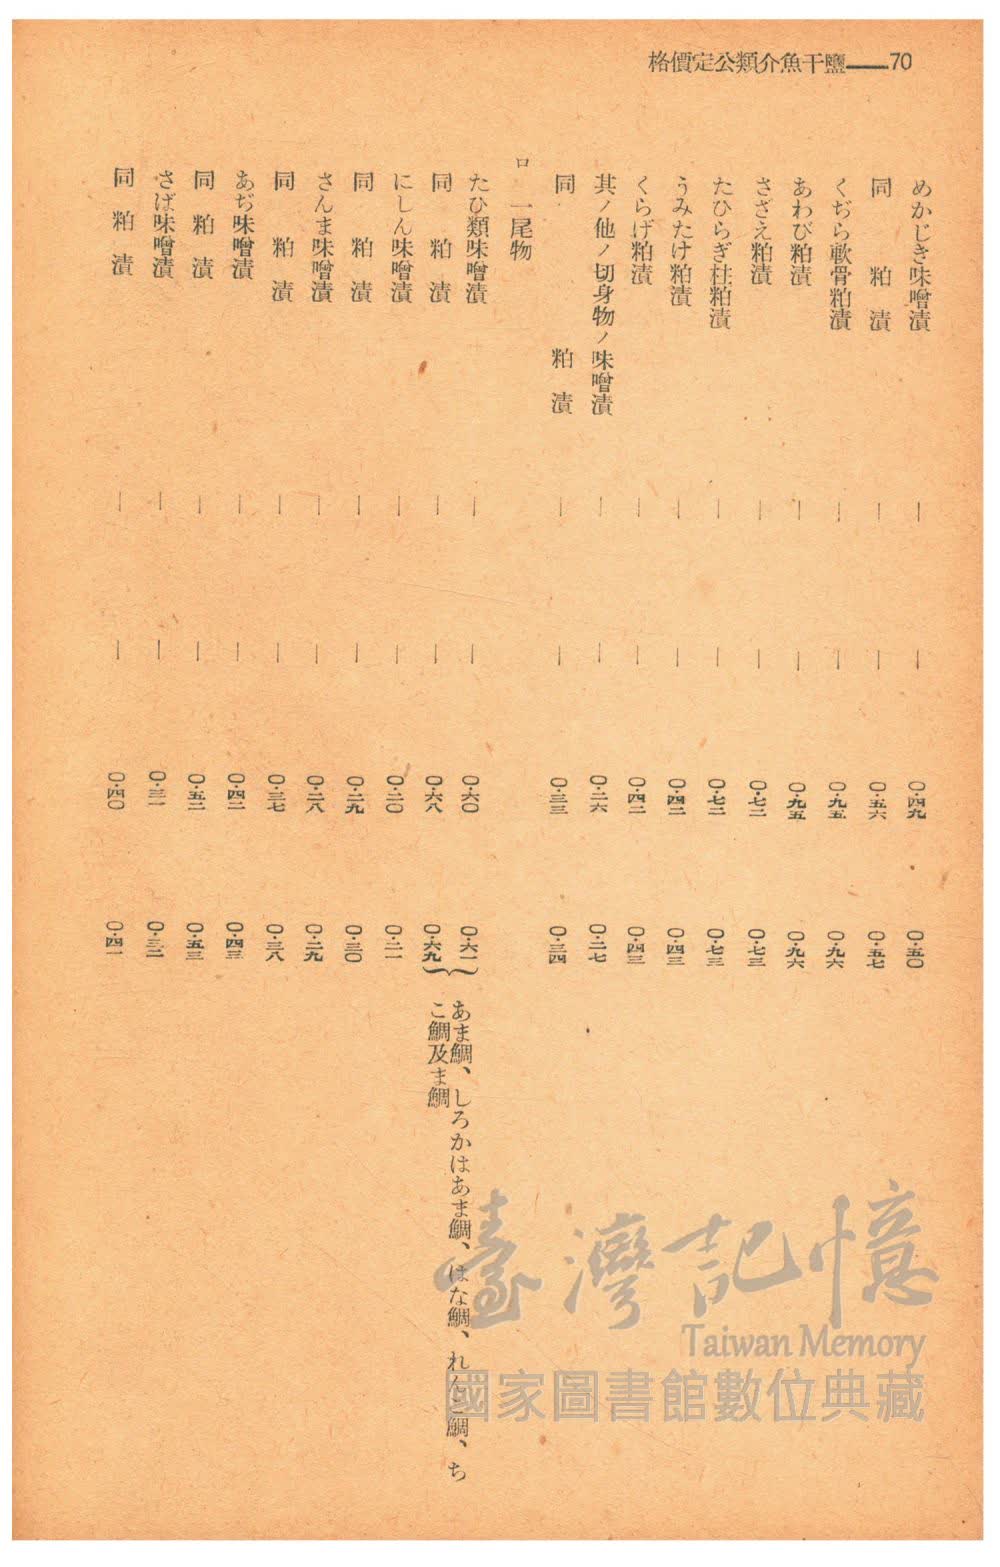 格價定公類介魚干鹽——70
めかじき味噌漬 — — 〇・四九 〇・五〇
同 粕漬 — — 〇・五六 〇・五七
くぢら軟骨粕漬 — — 〇・九五 〇・九六
あわび粕漬 — — 〇・九五 〇・九六
さざえ粕漬 — — 〇・七二 〇・七三
たひらぎ柱粕漬 — — 〇・七二 〇・七三
うみたけ粕漬 — — 〇・四二 〇・四三
くらげ粕漬 — — 〇・四二 〇・四三
其ノ他ノ切身物ノ味噌漬 — — 〇・二六 〇・二七
同 粕漬 — — 〇・三三 〇・三四
ロ 一尾物
たひ類味噌漬 — — 〇・六〇 〇・六一
同 粕漬 — — 〇・六八 〇・六九
あま鯛、しろかはあま鯛、はな鯛、れんこ鯛、ち
こ鯛及ま鯛
にしん味噌漬 — — 〇・二〇 〇・二一
同 粕漬 — — 〇・二九 〇・三〇
さんま味噌漬 — — 〇・二八 〇・二九
同 粕漬 — — 〇・三七 〇・三八
あぢ味噌漬 — — 〇・四二 〇・四三
同 粕漬 — — 〇・五二 〇・五三
さば味噌漬 — — 〇・三一 〇・三二
同 粕漬 — — 〇・四〇 〇・四一
臺灣記憶
Taiwan Memory
國家圖書館數位典藏